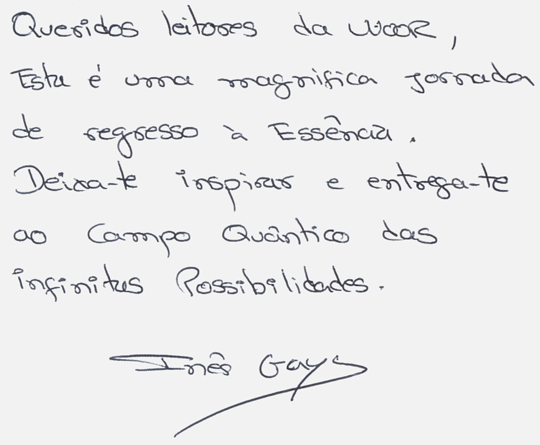 Queridos leitores da WOOK,
Esta é uma magnifica jornada
de regresso à Essência.
Deixa-te inspirar e entrega-te
ao Campo Quântico das
infinitas Possibilidades.
Inês Gaya